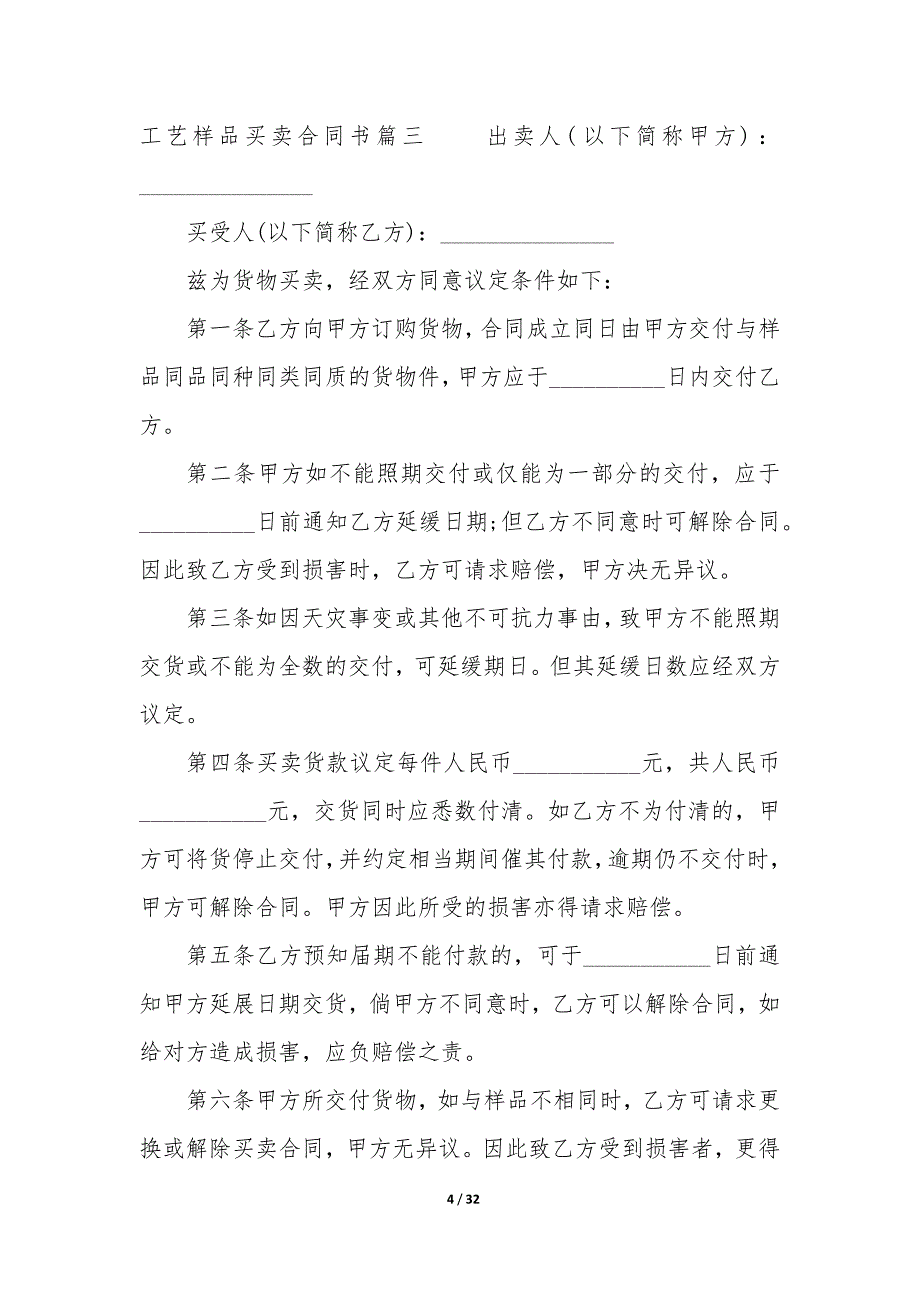 工艺样品买卖合同书篇三 出卖人(以下简称甲方)：
_______________
买受人(以下简称乙方)：_______________
兹为货物买卖，经双方同意议定条件如下：
第一条乙方向甲方订购货物，合同成立同日由甲方交付与样
品同品同种同类同质的货物件，甲方应于__________日内交付乙
方。
第二条甲方如不能照期交付或仅能为一部分的交付，应于
__________日前通知乙方延缓日期;但乙方不同意时可解除合同。
因此致乙方受到损害时，乙方可请求赔偿，甲方决无异议。
第三条如因天灾事变或其他不可抗力事由，致甲方不能照期
交货或不能为全数的交付，可延缓期日。但其延缓日数应经双方
议定。
第四条买卖货款议定每件人民币___________元，共人民币
___________元，交货同时应悉数付清。如乙方不为付清的，甲
方可将货停止交付，并约定相当期间催其付款，逾期仍不交付时，
甲方可解除合同。甲方因此所受的损害亦得请求赔偿。
第五条乙方预知届期不能付款的，可于___________日前通
知甲方延展日期交货，倘甲方不同意时，乙方可以解除合同，如
给对方造成损害，应负赔偿之责。
第六条甲方所交付货物，如与样品不相同时，乙方可请求更
换或解除买卖合同，甲方无异议。因此致乙方受到损害者，更得
4 / 32